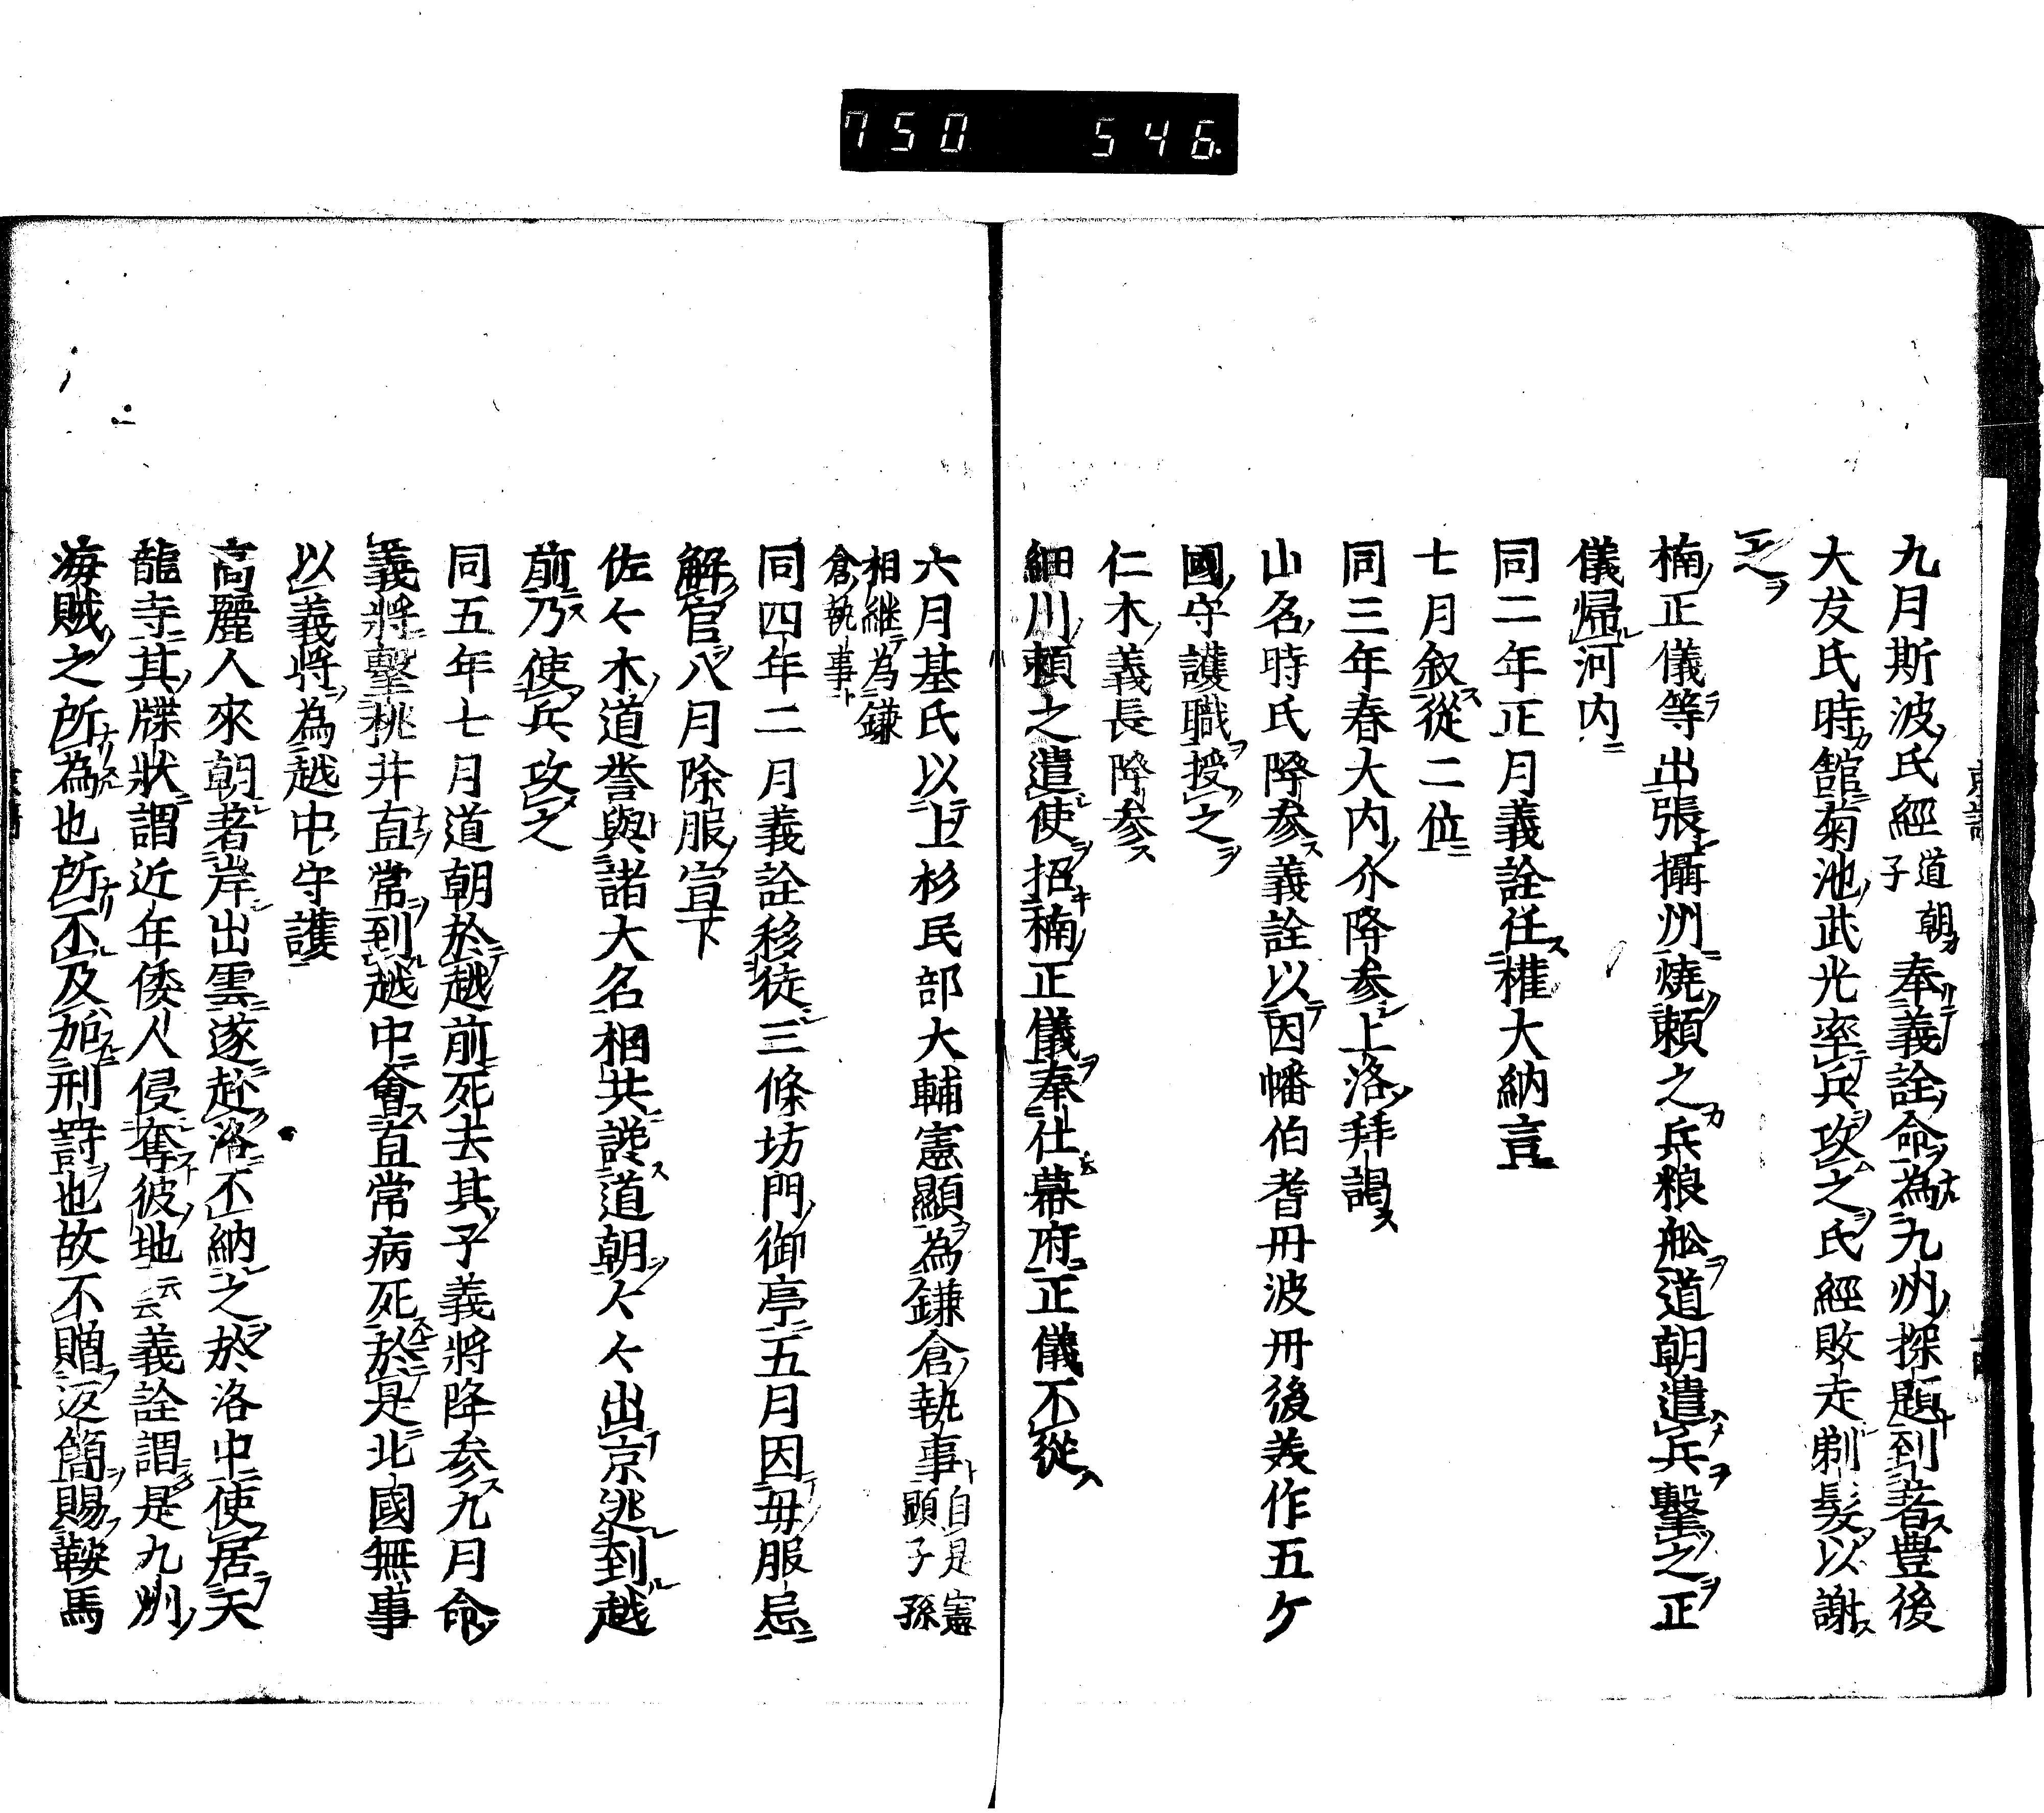 750 546
九月斯波氏經道朝子奉義詮命為九州探題到著豊後
大友氏時舘菊池武光率兵攻之氏經敗走剃髪以謝
之
楠正儀等出張攝州燒頼之兵粮舩道朝遣兵擊之正
儀歸河内
同二年正月義詮任權大納言
七月叙從二位
同三年春大内介降参上洛拜謁
山名時氏降参義詮以因幡伯耆丹波丹後美作五ケ
國守護職授之
仁木義長降参
細川頼之遣使招楠正儀奉仕幕府正儀不從
六月基氏以上杉民部大輔憲顯為鎌倉執事自是憲顕子孫
相継為鎌倉執事
同四年二月義詮移徒三條坊門御亭五月因毋服忌
解官八月除服宣下
佐々木道誉與諸大名相共讒道朝々々出京逃到越
前乃使兵攻之
同五年七月道朝於越前死去其子義將降参九月命
義將擊桃井直常到越中會直常病死於是北國無事
以義将為越中守護
高麗人來朝著岸出雲遂赴洛不納之於洛中使居天
龍寺其牒狀謂近年倭人侵奪彼地云云義詮謂是九州
海賊之所為也所不及加刑罸也故不贈返簡賜鞍馬